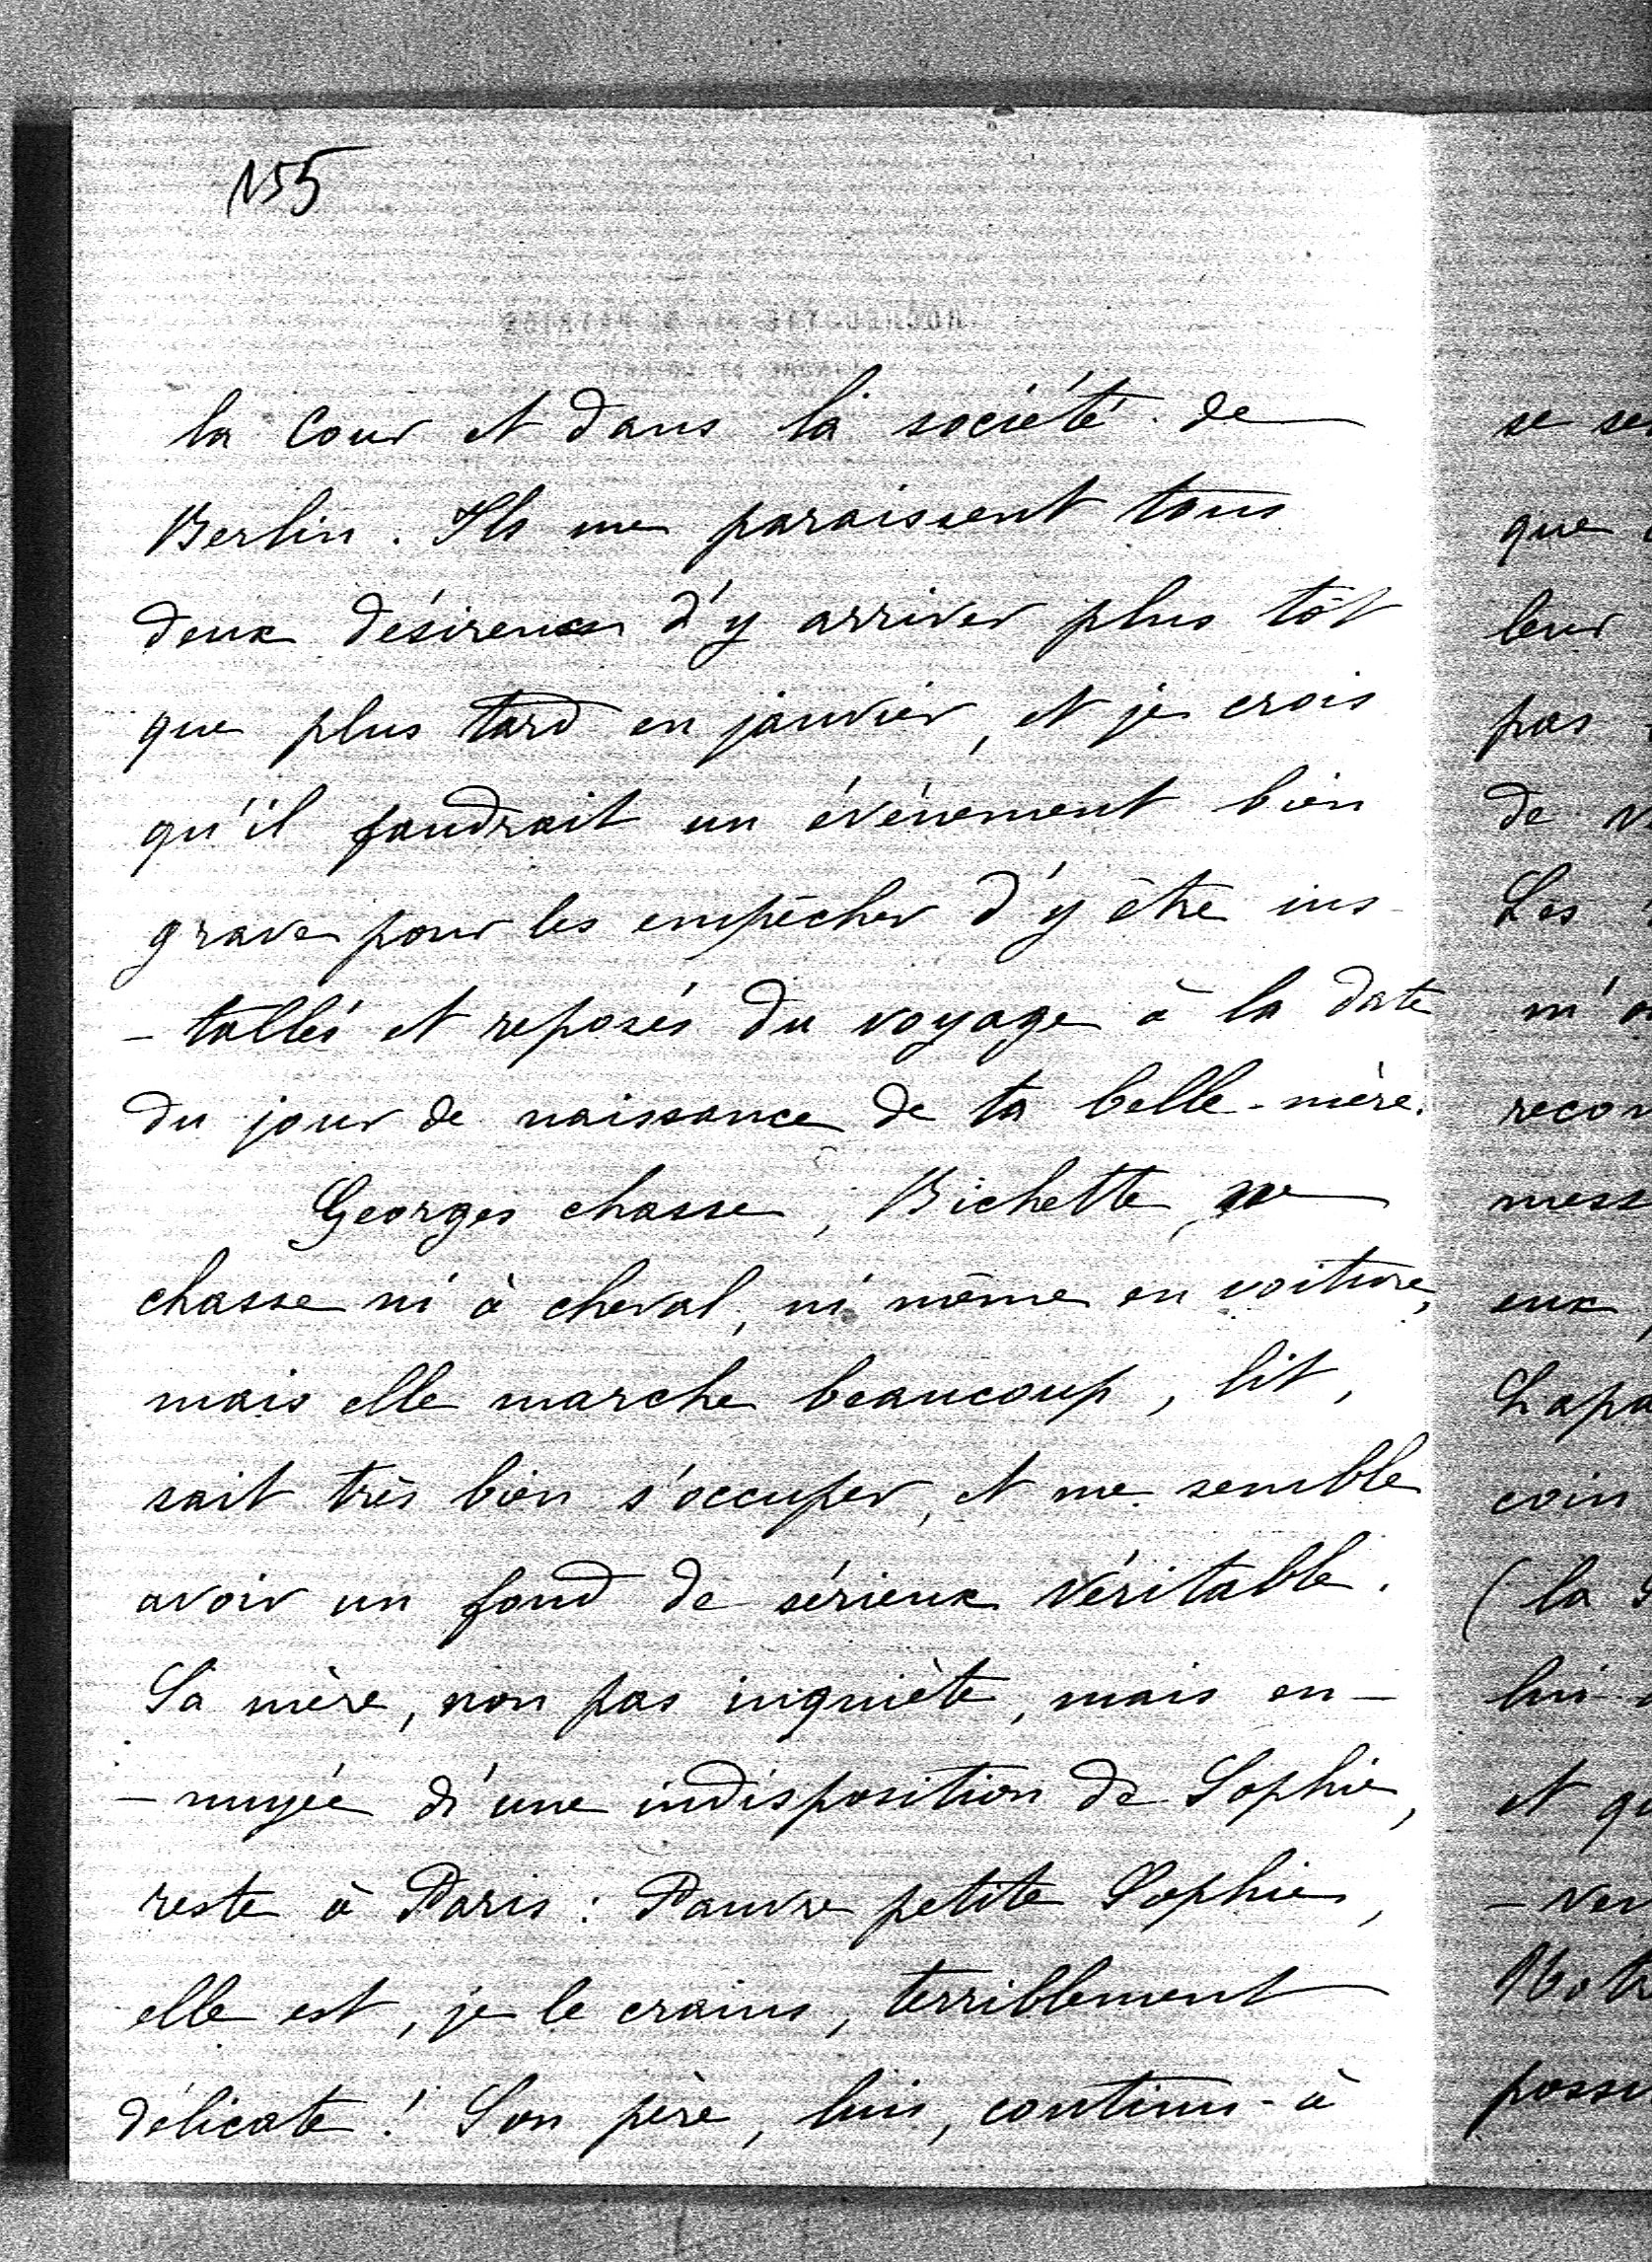 155
la Cour et dans la société de
Berlin. Ils me paraissent tous
deux désireux d'y arriver plus tôt
que plus tard en janvier, et je crois
qu'il faudrait un événement bien
grave pour les empêcher d'y être ins-
-tallés et reposés du voyage à la date
du jour de naissance de ta belle-mère.
Georges chasse, Bichette ne
chasse ni à cheval, ni même en voiture,
mais elle marche beaucoup, lit,
sait très bien s'occuper, et me semble
avoir un fond de sérieux véritable.
Sa mère, non pas inquiète, mais en-
-nuyée d'une indisposition de Sophie,
reste à Paris : Pauvre petite Sophie,
elle est, je le crains, terriblement
délicate ! Son père, lui, continue à
se
que
leur
pas
de
Les
eux
coin
(la
lui
et